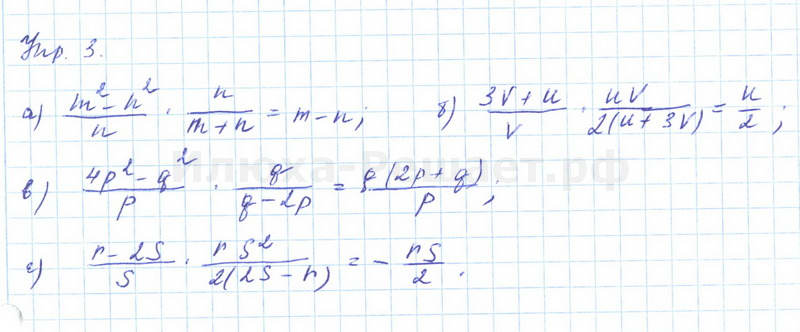 Упр. 3.
а) (m² − n²)/n · n/(m+n) = m − n; б) (3v + u)/v · uv/(2(u + 3v)) = u/2;
в) (4p² − q²)/p · q/(q − 2p) = q(2p + q)/p;
г) (r − 2s)/s · rs²/(2(2s − r)) = − rs/2.
Илюха-Решает.рф